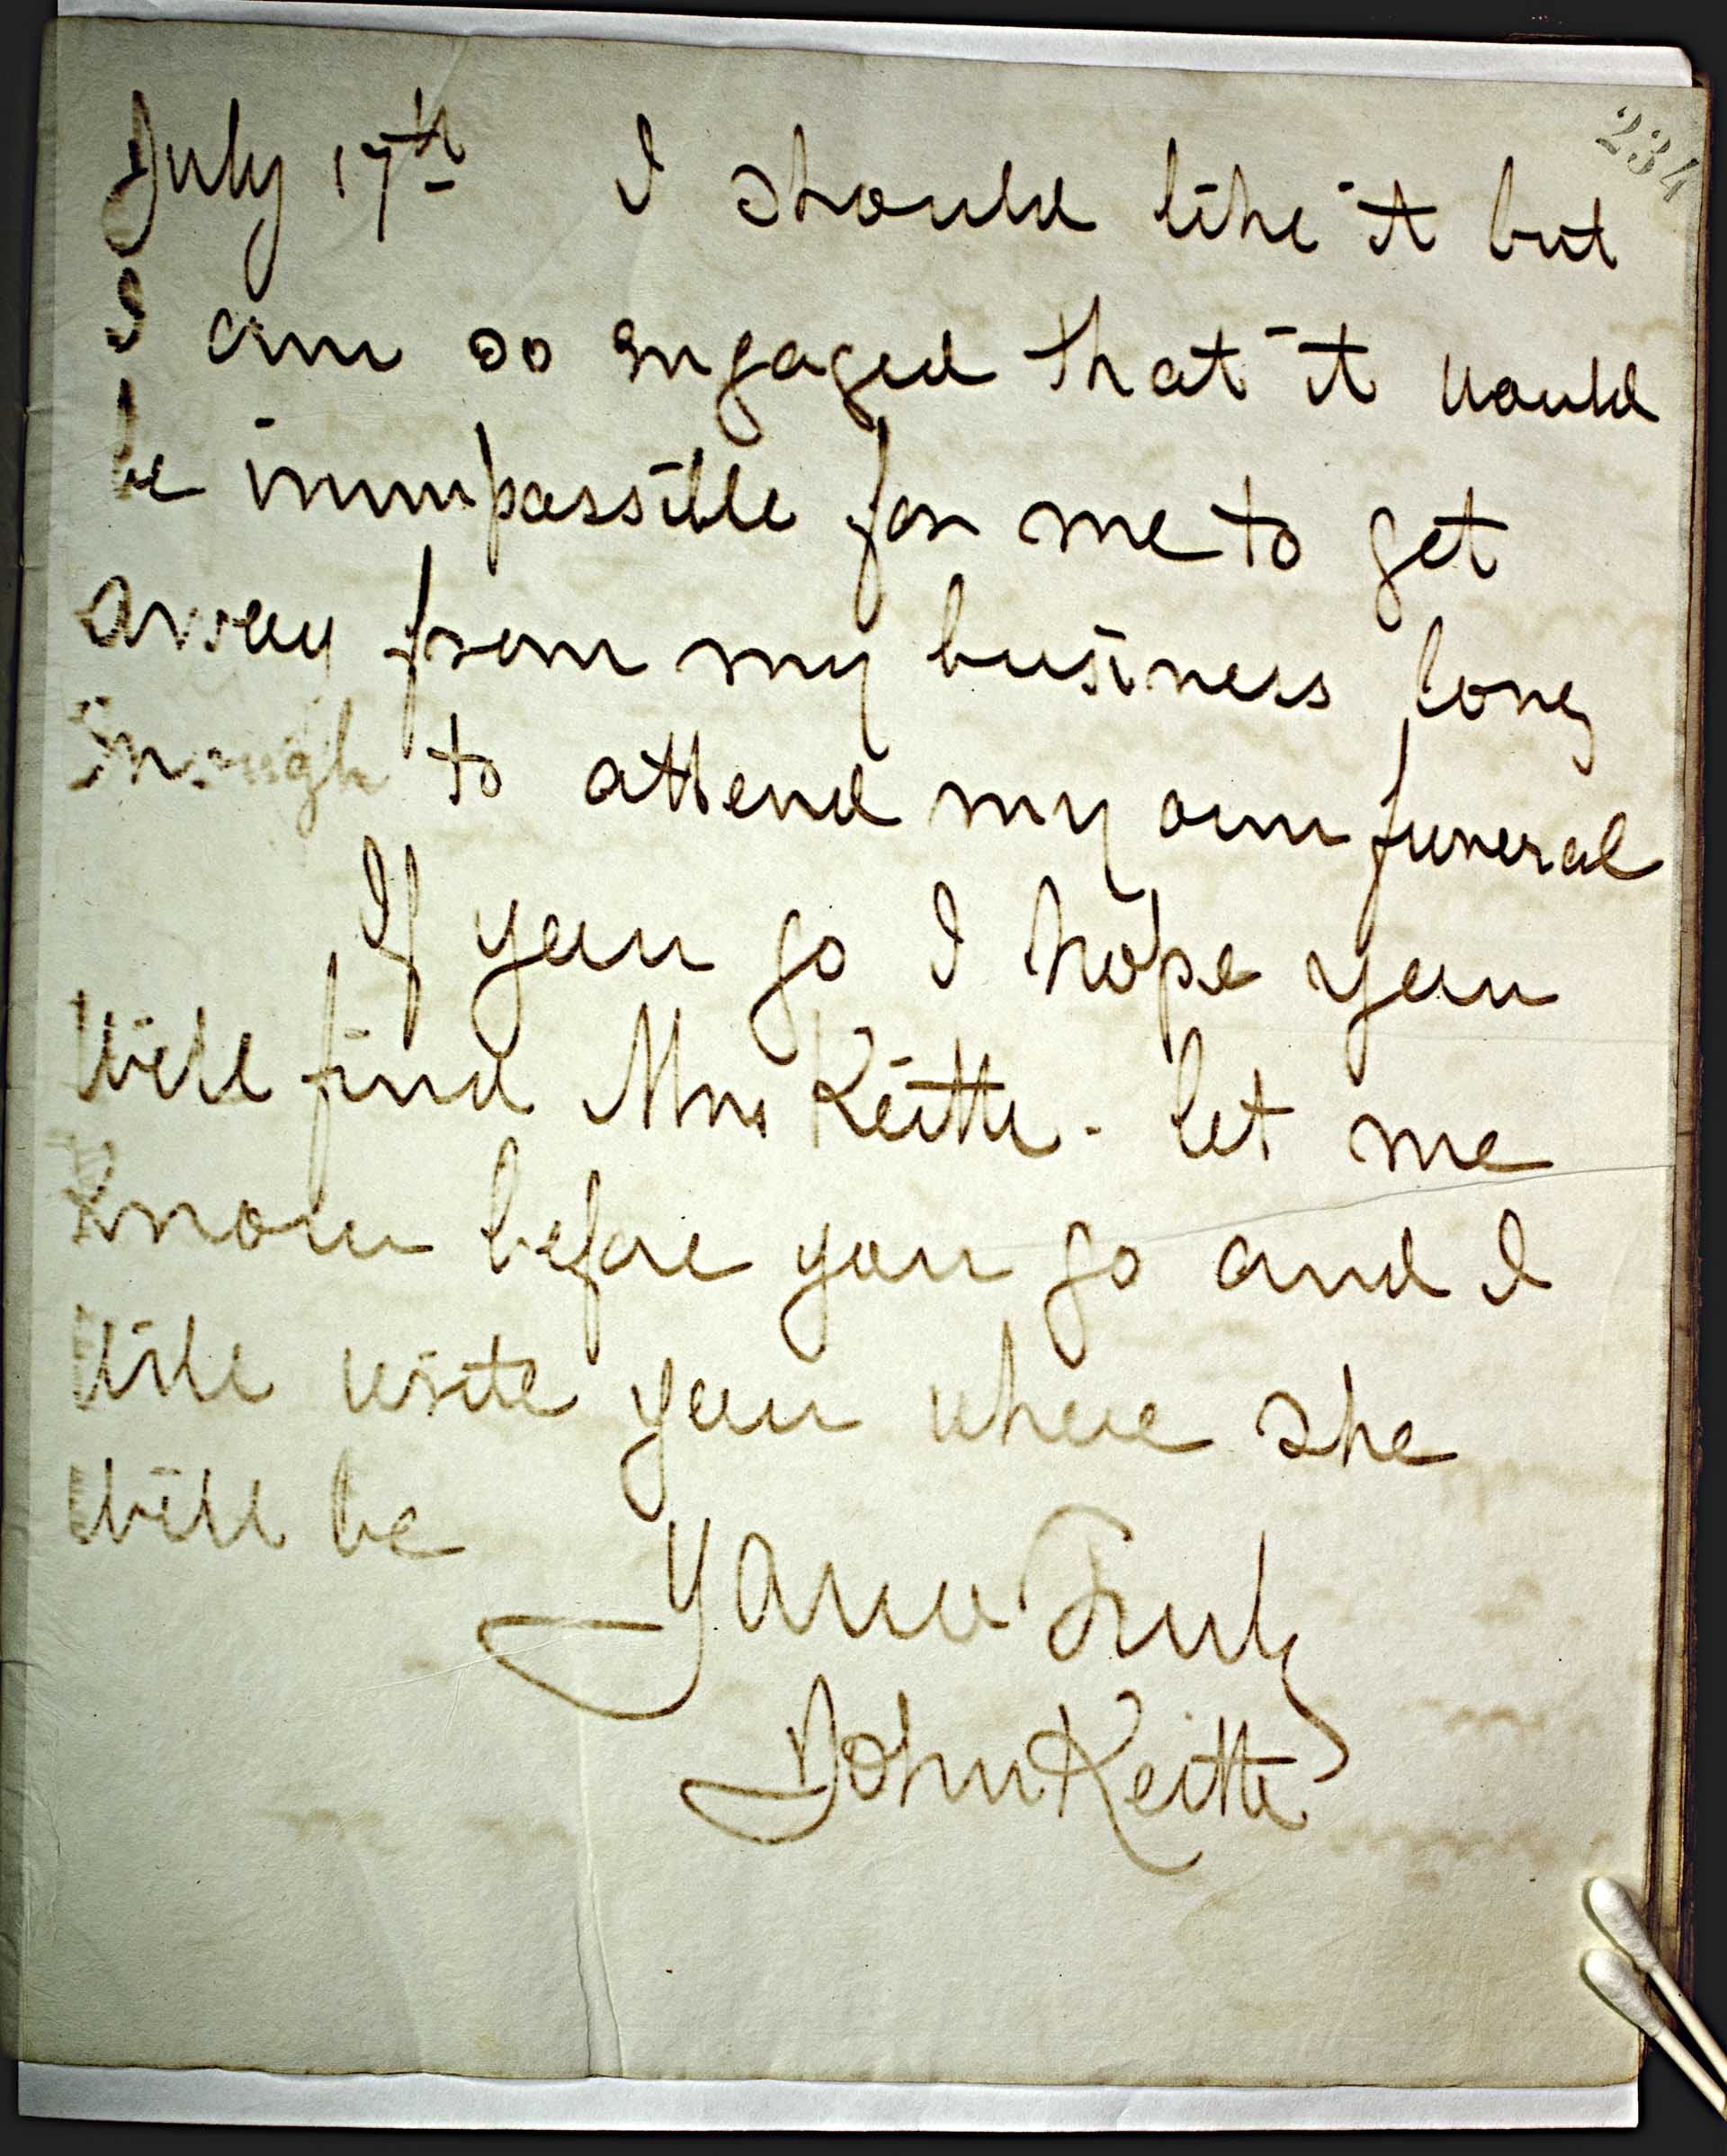 234
July 17th I should like it but
I am so engaged that it would
be immpossible for me to get
away from my business long
enough to attend my own funeral
If you go I hope you
will find Mrs Keith - let me
know before you go and I
will write you where she
will be
Yours Truly
John Keith